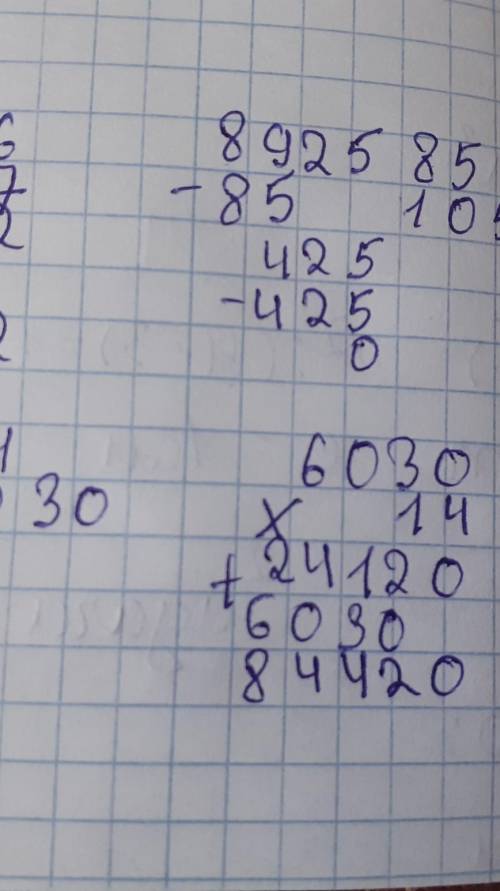 6
8925 85
7
- 85 105
2
425
- 425
2
0
1
6030
30
x 14
+ 24120
6030
84420